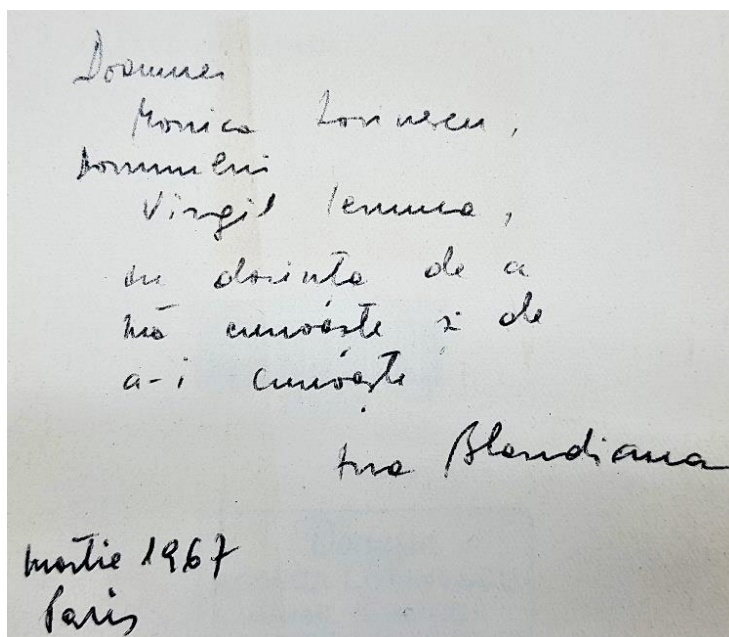 Doamnei
Monica Lovinescu,
Domnului
Virgil Ierunca,
cu dorința de a
mă cunoaște și de
a-i cunoaște
Ana Blandiana
martie 1967
Paris